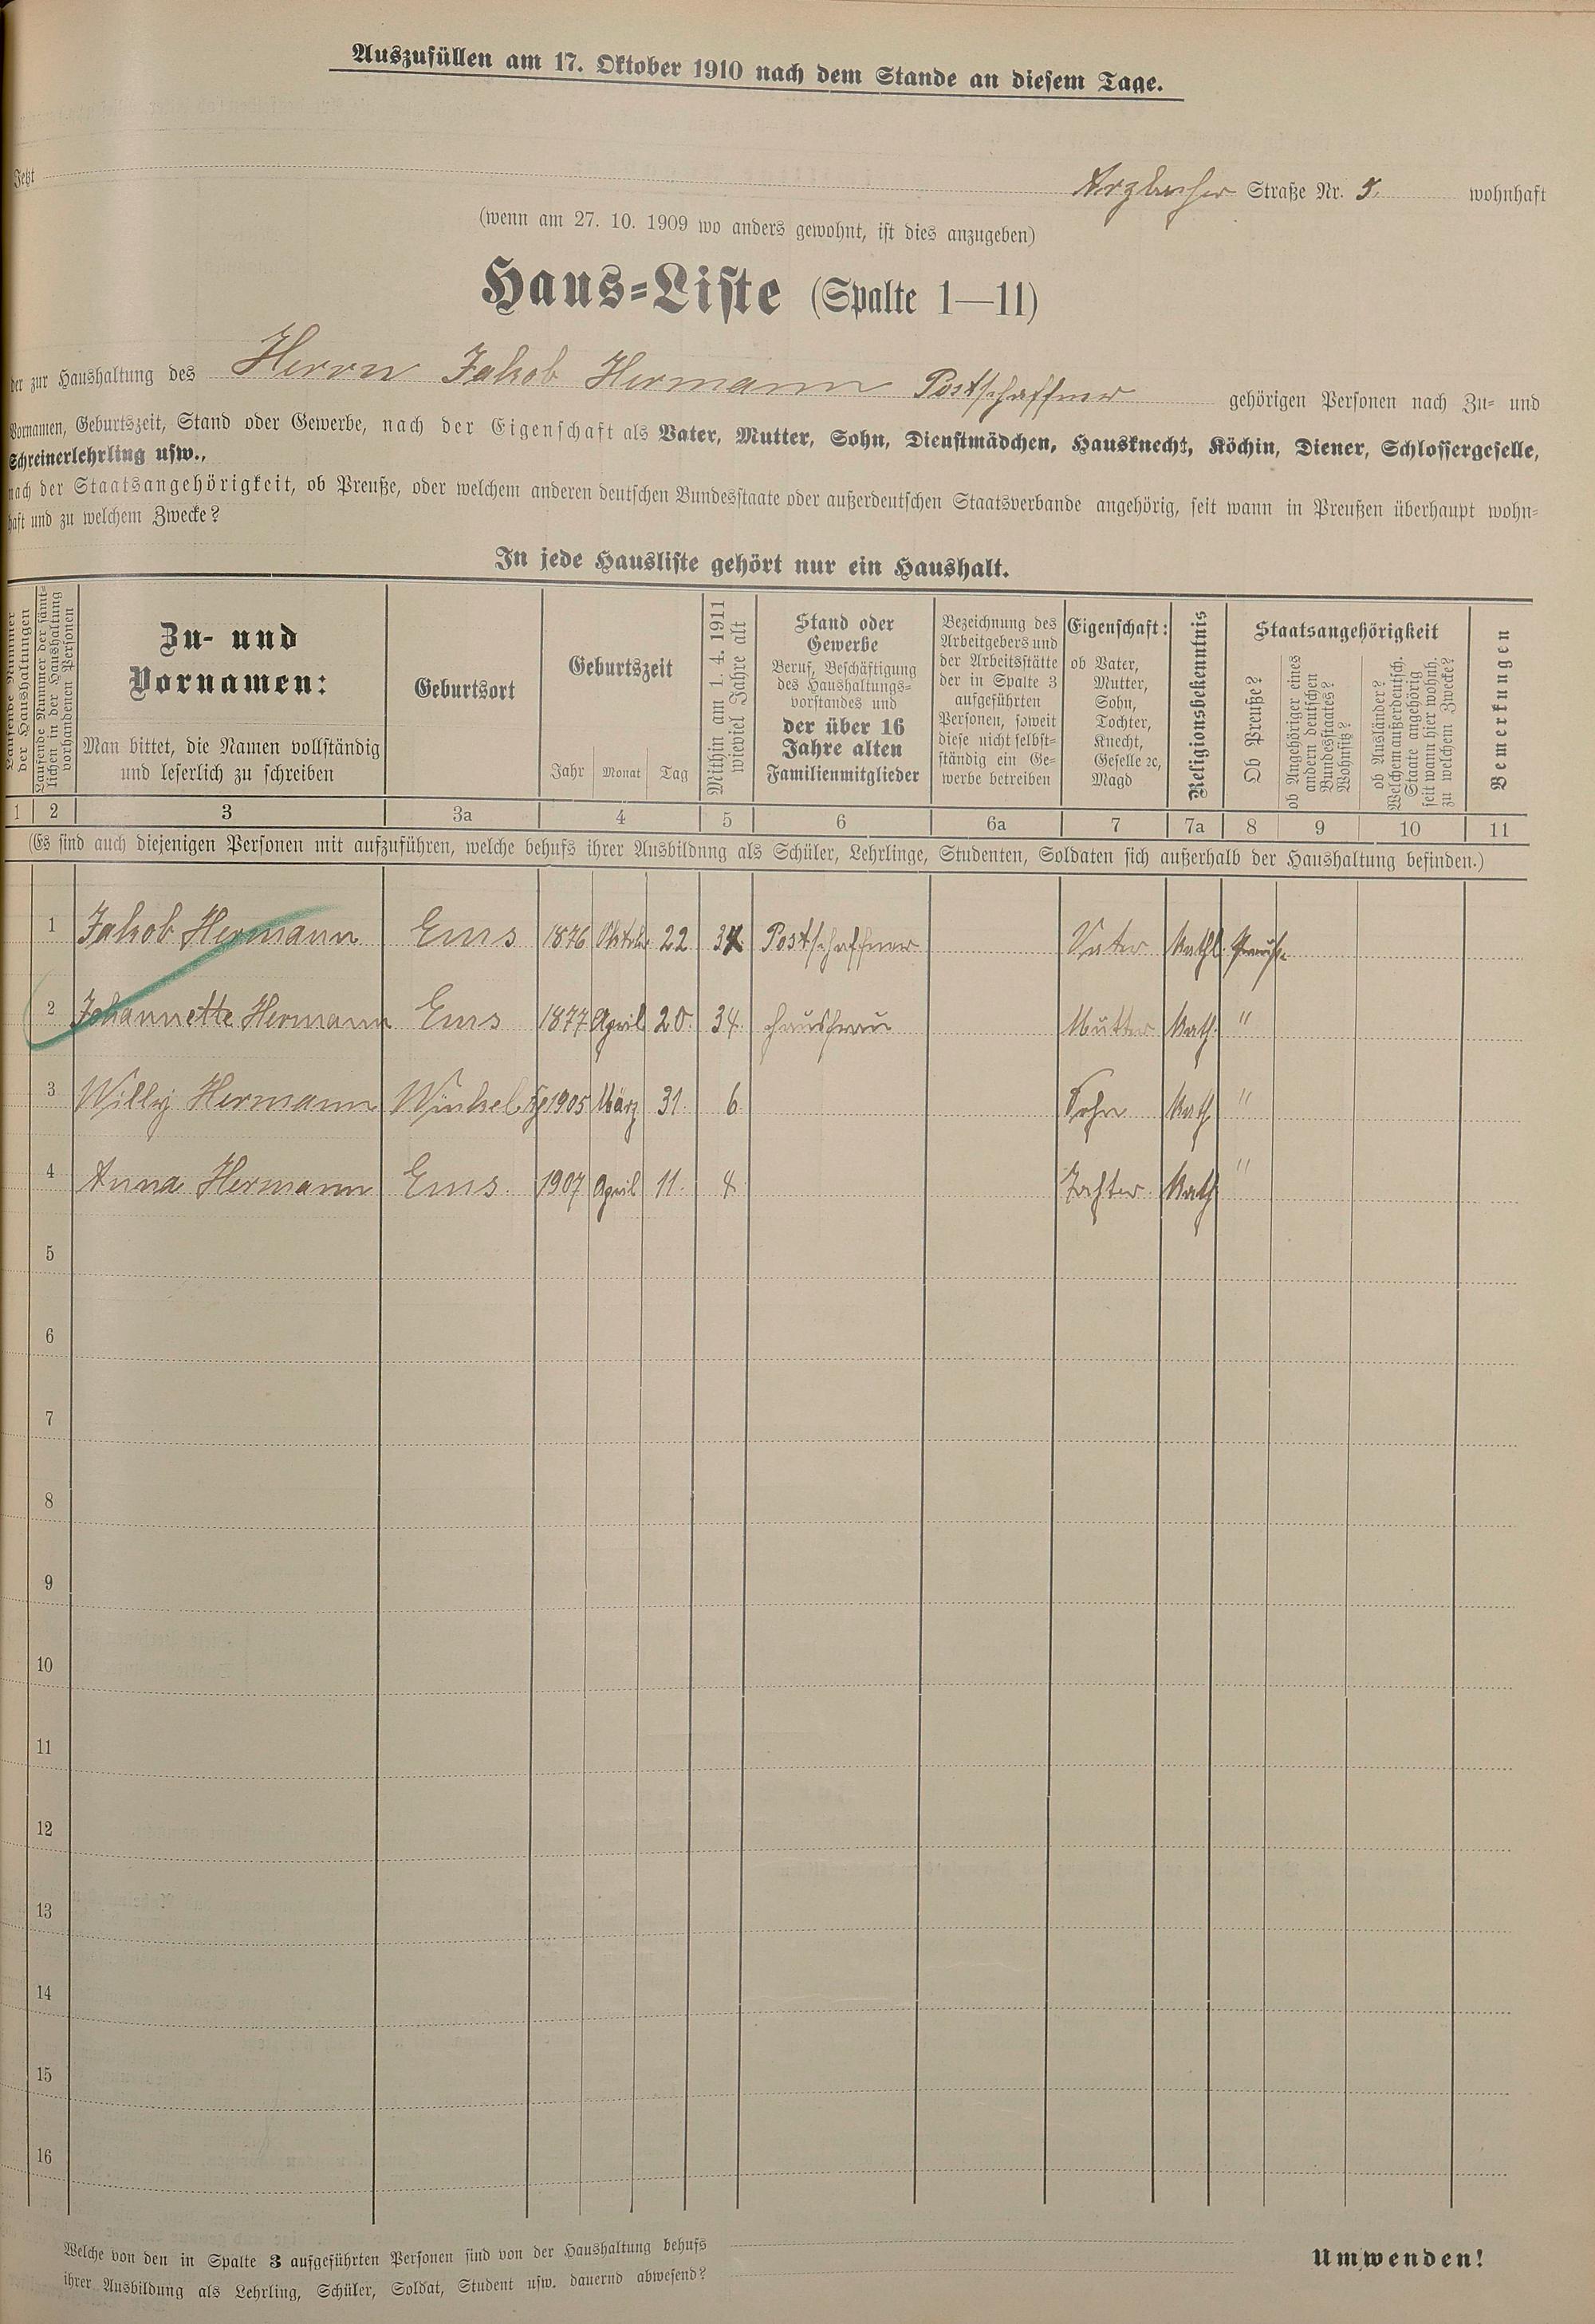 Auszufüllen am 17. Oktober 1910 nach dem Stande an diesem Tage.
Jetzt Arzbacher Straße Nr. 5. wohnhaft
(wenn am 27. 10. 1909 wo anders gewohnt, ist dies anzugeben)
Haus-Liste (Spalte 1—11)
der zur Haushaltung des Herrn Jakob Hermann Postschaffner gehörigen Personen nach Zu- und
Vornamen, Geburtszeit, Stand oder Gewerbe, nach der Eigenschaft als Vater, Mutter, Sohn, Dienstmädchen, Hausknecht, Köchin, Diener, Schlossergeselle,
Schreinerlehrling usw.,
nach der Staatsangehörigkeit, ob Preuße, oder welchem anderen deutschen Bundesstaate oder außerdeutschen Staatsverbande angehörig, seit wann in Preußen überhaupt wohn-
haft und zu welchem Zwecke?
In jede Hausliste gehört nur ein Haushalt.
Laufende Nummer
der Haushaltungen
Laufende Nummer der sämt-
lichen in der Haushaltung
vorhandenen Personen
Zu- und
Vornamen:
Man bittet, die Namen vollständig
und leserlich zu schreiben
Geburtsort
Geburtszeit
Jahr Monat Tag
Mithin am 1. 4. 1911
wieviel Jahre alt
Stand oder
Gewerbe
Beruf, Beschäftigung
des Haushaltungs-
vorstandes und
der über 16
Jahre alten
Familienmitglieder
Bezeichnung des
Arbeitgebers und
der Arbeitsstätte
der in Spalte 3
aufgeführten
Personen, soweit
diese nicht selbst-
ständig ein Ge-
werbe betreiben
Eigenschaft:
ob Vater,
Mutter,
Sohn,
Tochter,
Knecht,
Geselle ꝛc,
Magd
Religionsbekenntnis
Staatsangehörigkeit
Ob Preuße?
ob Angehöriger eines
andern deutschen
Bundesstaates?
Wohnsitz?
ob Ausländer?
Welchem außerdeutsch.
Staate angehörig
seit wann hier wohnh.
zu welchem Zwecke?
Bemerkungen
1 2 3 3a 4 5 6 6a 7 7a 8 9 10 11
(Es sind auch diejenigen Personen mit aufzuführen, welche behufs ihrer Ausbildung als Schüler, Lehrlinge, Studenten, Soldaten sich außerhalb der Haushaltung befinden.)
1 Jakob Hermann Ems 1876 Oktober 22 34 Postschaffner Vater Kathl Preuße
2 Johannette Hermann Ems 1877 April 20. 34. Hausfrau Mutter Kath. "
3 Willy Hermann Winkel 1905 März 31. 6 Sohn Kath. "
4 Anna Hermann Ems. 1907 April 11. 4. Tochter Kath "
5
6
7
8
9
10
11
12
13
14
15
16
Welche von den in Spalte 3 aufgeführten Personen sind von der Haushaltung behufs
ihrer Ausbildung als Lehrling, Schüler, Soldat, Student usw. dauernd abwesend?
Umwenden!